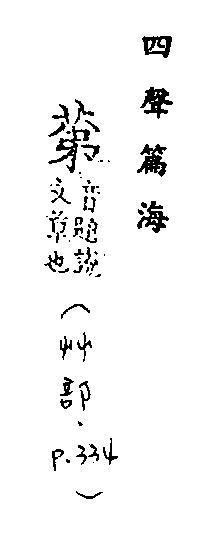 四聲篇海
苐
音題說
文草也
（艸部．p.334）